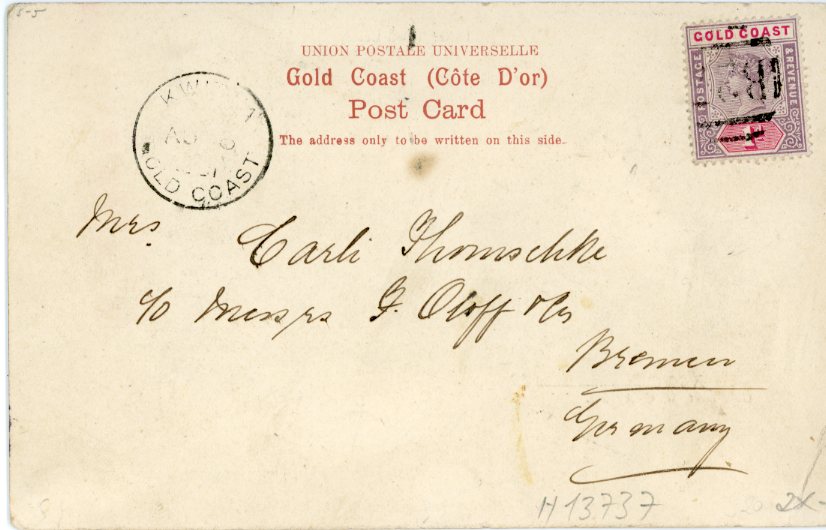 UNION POSTALE UNIVERSELLE
Gold Coast (Côte D'or)
Post Card
The address only to be written on this side.
GOLD COAST
POSTAGE
& REVENUE
GOLD COAST
Mrs
Carli Thomschke
c/o Messrs G. Oloff & Co
Bremen
Germany
H13737